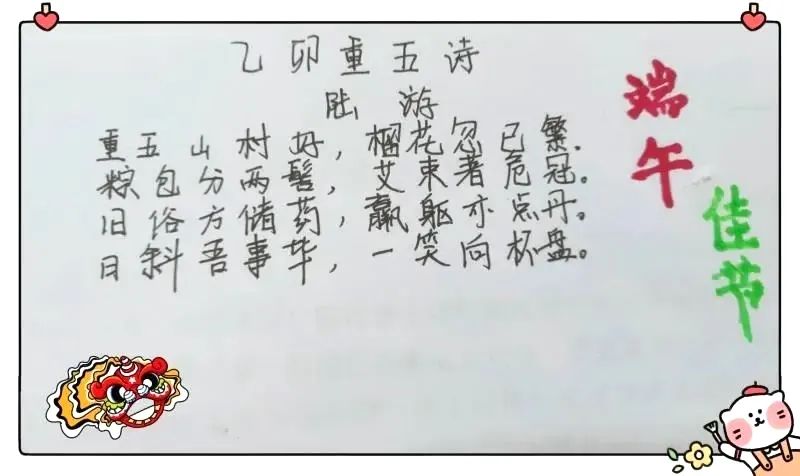 乙卯重五诗
陆游
重五山村好，榴花忽已繁．
粽包分两髻，艾束著危冠。
旧俗方储药，羸躯亦点丹。
日斜吾事毕，一笑向杯盘。
端午
佳节